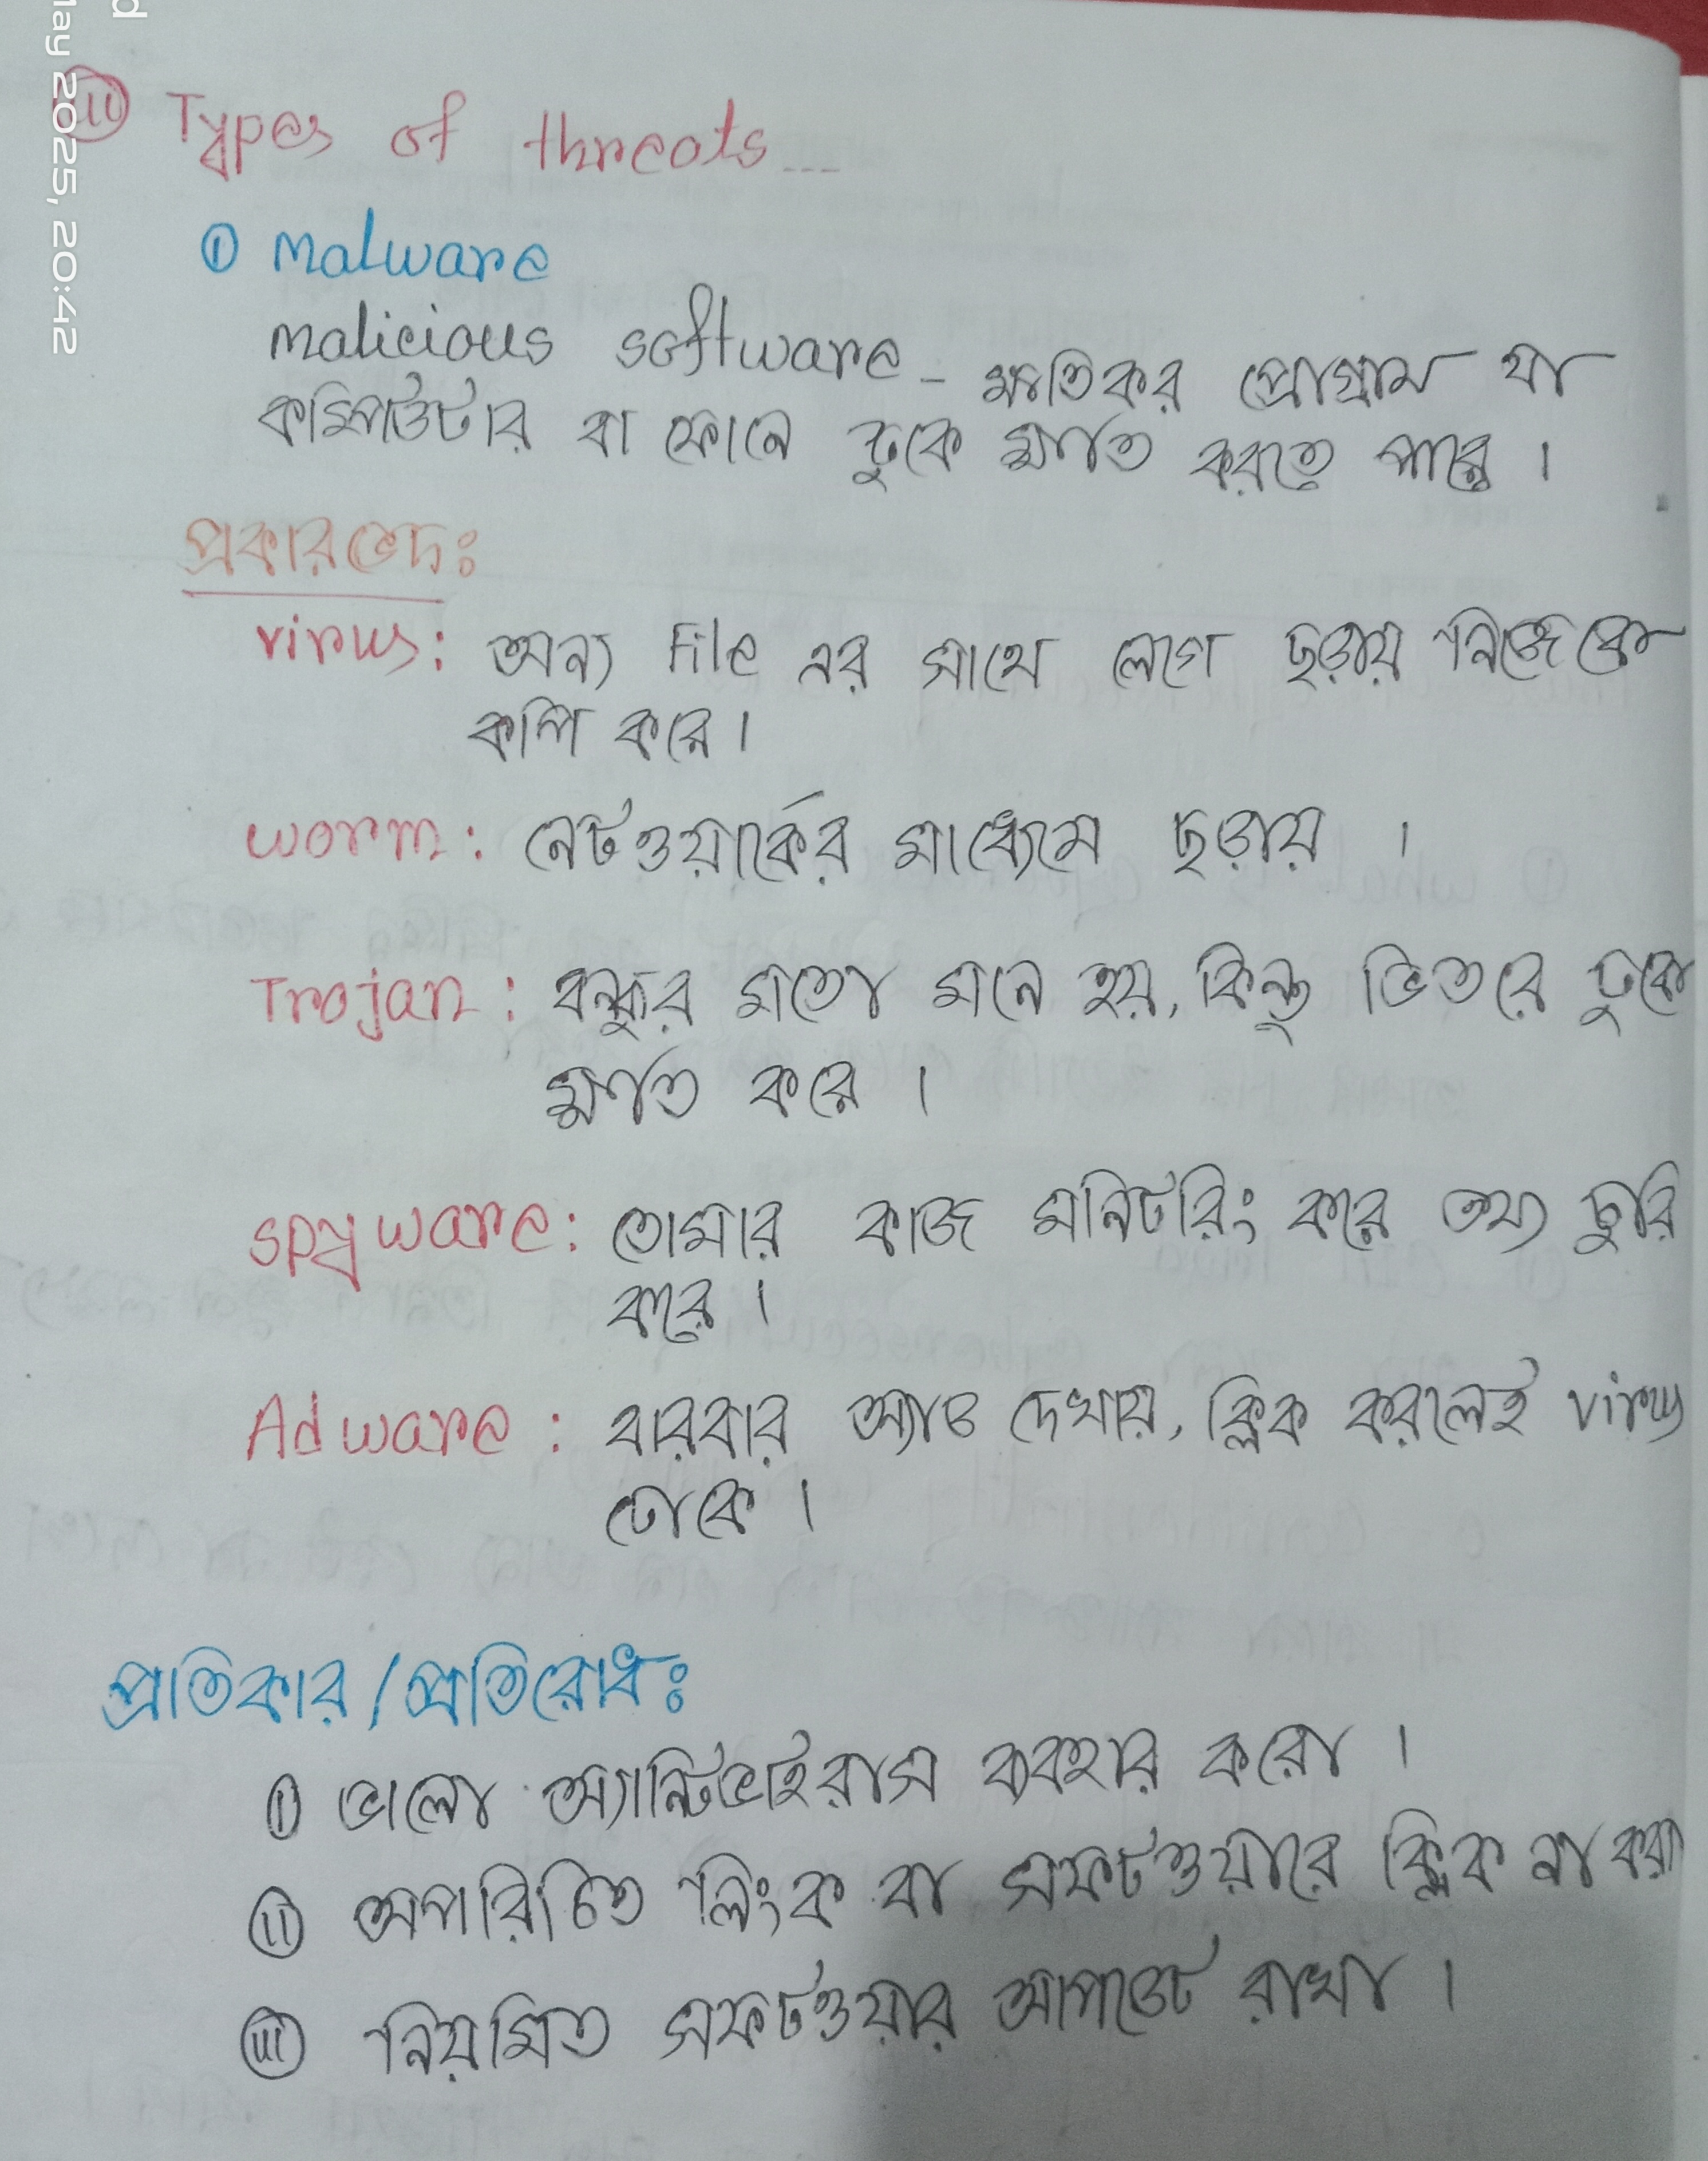 iii Types of threats...
① Malware
Malicious software - ক্ষতিকর প্রোগ্রাম যা
কম্পিউটার বা ফোনে ঢুকে ক্ষতি করতে পারে।
প্রকারভেদঃ
virus: অন্য File এর সাথে লেগে ছড়ায় নিজেকে
কপি করে।
worm: নেটওয়ার্কের মাধ্যেমে ছড়ায় ।
Trojan: বন্ধুর মতো মনে হয়, কিন্তু ভিতরে ঢুকে
ক্ষতি করে ।
spyware: তোমার কাজ মনিটরিং করে তথ্য চুরি
করে।
Adware: বারবার অ্যাড দেখায়, ক্লিক করলেই virus
ঢোকে।
প্রতিকার/প্রতিরোধঃ
i ভালো অ্যান্টিভাইরাস ব্যবহার করো ।
ii অপরিচিত লিংক বা সফটওয়ারে ক্লিক না করা
iii নিয়মিত সফটওয়ার আপডেট রাখা ।
May 2025, 20:42